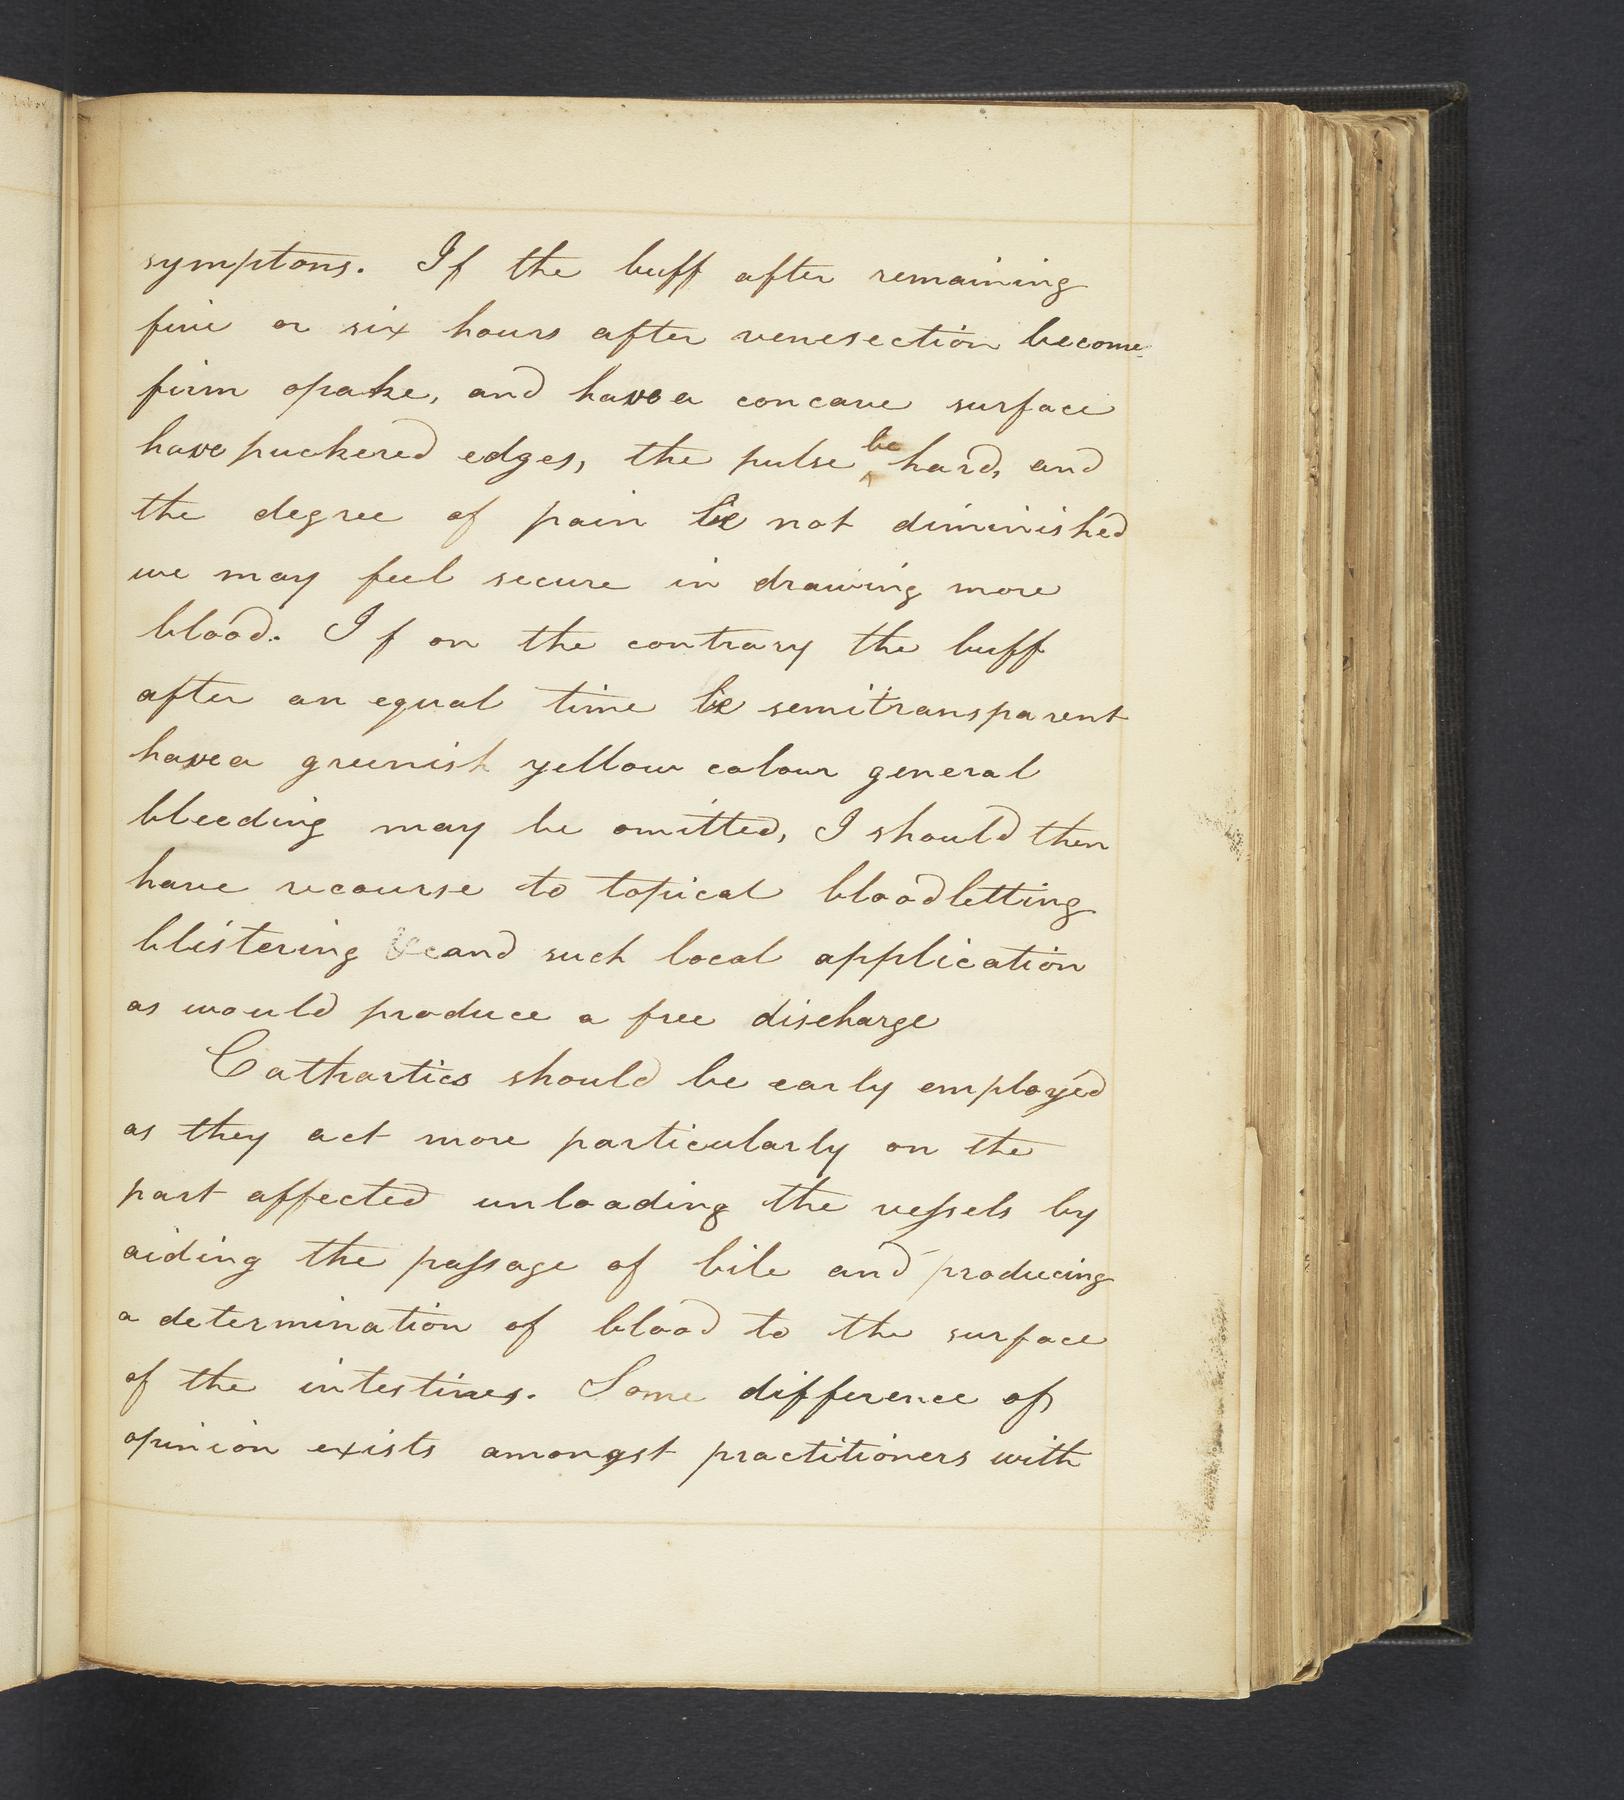 symptons. If the buff after remaining
five or six hours after venesection become
firm opake, and have a concave surface
have puckered edges, the pulse be hard, and
the degree of pain be not diminished
we may feel secure in drawing more
blood. If on the contrary the buff
after an equal time be semitransparent
have a greenish yellow colour general
bleeding may be omitted, I should then
have recourse to topical bloodletting
blistering and such local application
as would produce a free discharge
Cathartics should be early employed
as they act more particularly on the
part affected unloading the vessels by
aiding the passage of bile and producing
a determination of blood to the surface
of the intestines. Some difference of
opinion exists amongst practitioners with